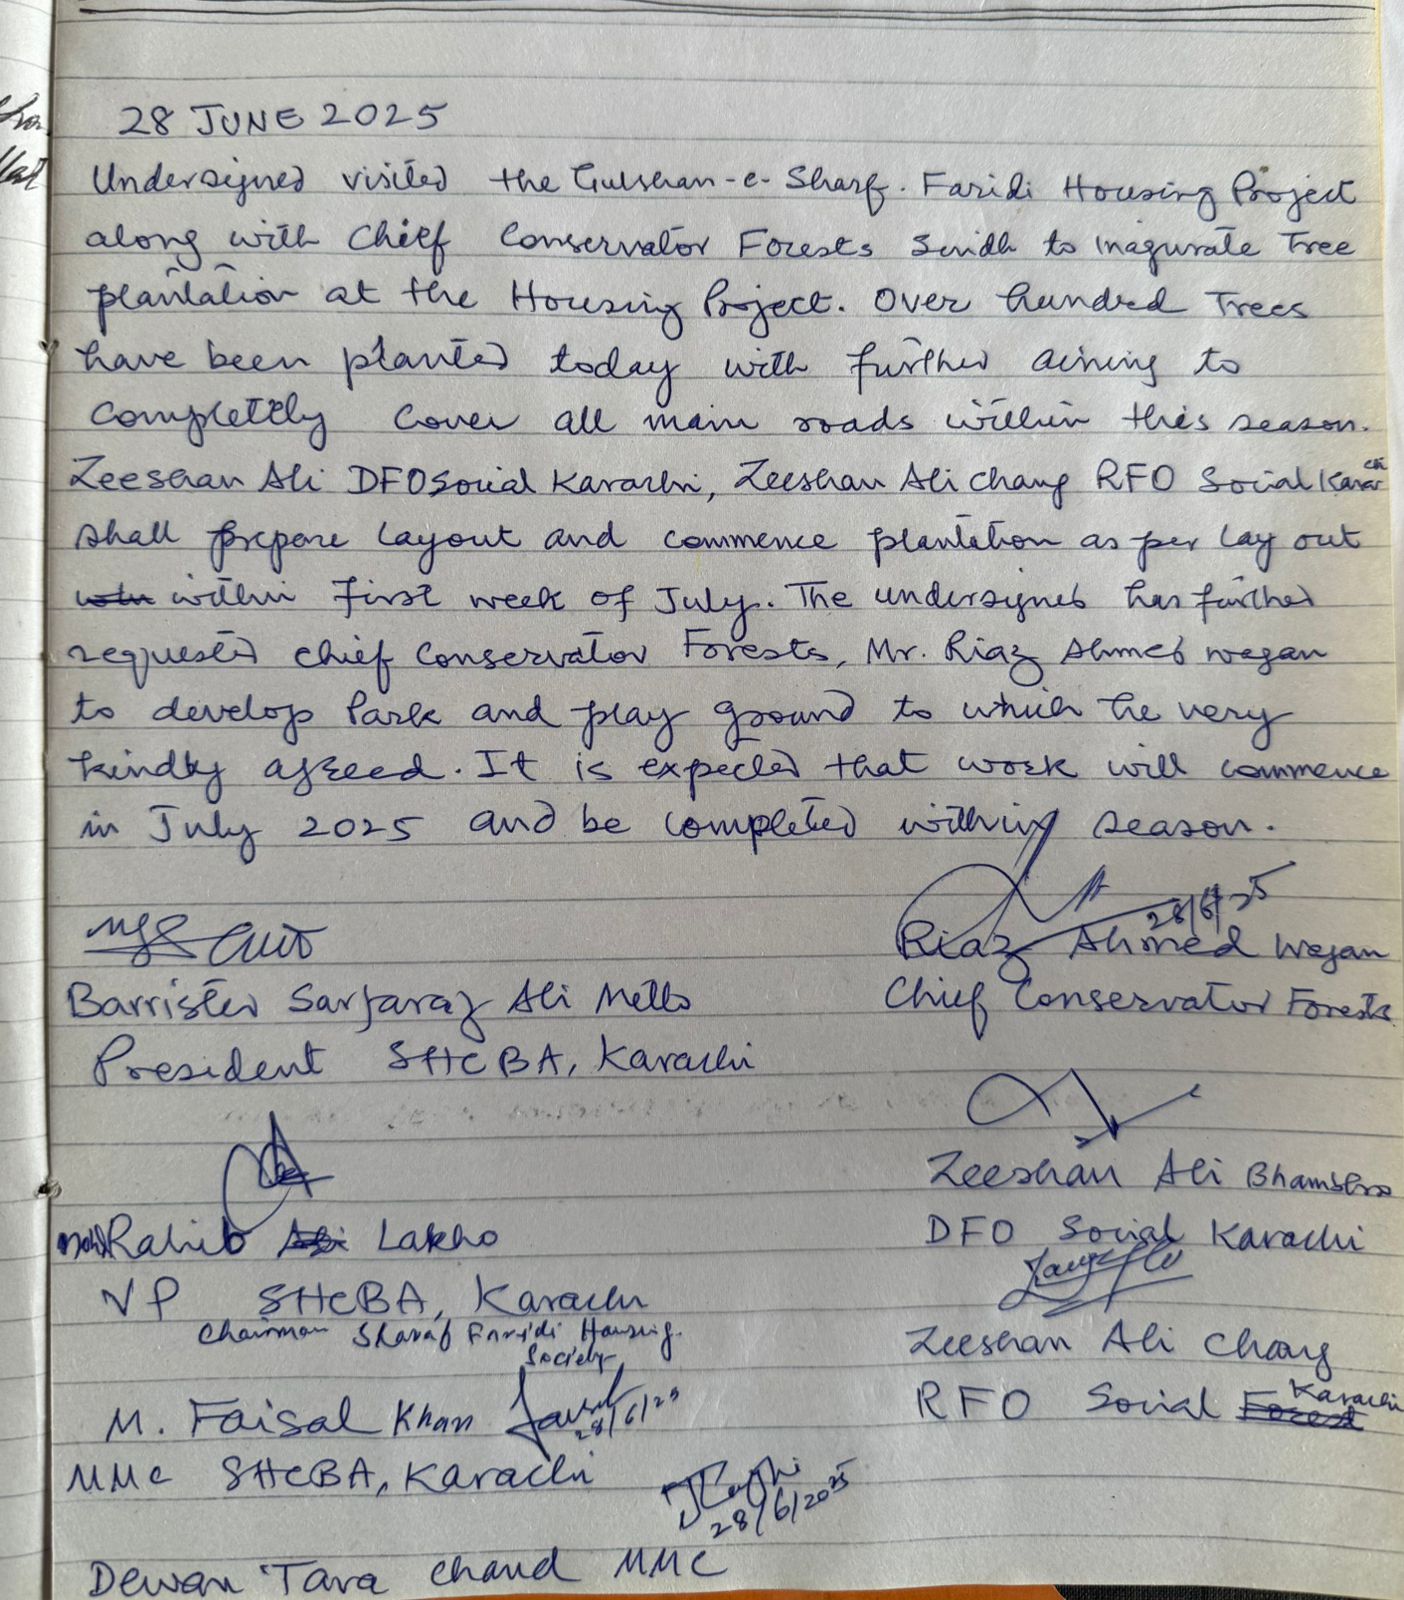 28 JUNE 2025
Undersigned visited the Gulshan-e-Sharf. Faridi Housing Project
along with Chief Conservator Forests Sindh to inagurate Tree
plantation at the Housing Project. Over hundred Trees
have been planted today with further aiming to
completely cover all main roads within this season.
Zeeshan Ali DFO Social Karachi, Zeeshan Ali Chang RFO Social Karachi
shall prepare layout and commence plantation as per lay out
within first week of July. The undersigned has further
requested chief Conservator Forests, Mr. Riaz Ahmed wagan
to develop Park and play ground to which he very
kindly agreed. It is expected that work will commence
in July 2025 and be completed within season.
28/6/25
Riaz Ahmed Wagan
Barrister Sarfaraz Ali Metlo
Chief Conservator Forests
President SHCBA, Karachi
Zeeshan Ali Bhambhro
Rahib Lakho
DFO Social Karachi
VP SHCBA, Karachi
Chairman Sharaf Faridi Housing
Society
Zeeshan Ali Chang
M. Faisal Khan 28/6/25
RFO Social Karachi
MMC SHCBA, Karachi
28/6/2025
Dewan Tara Chand MMC